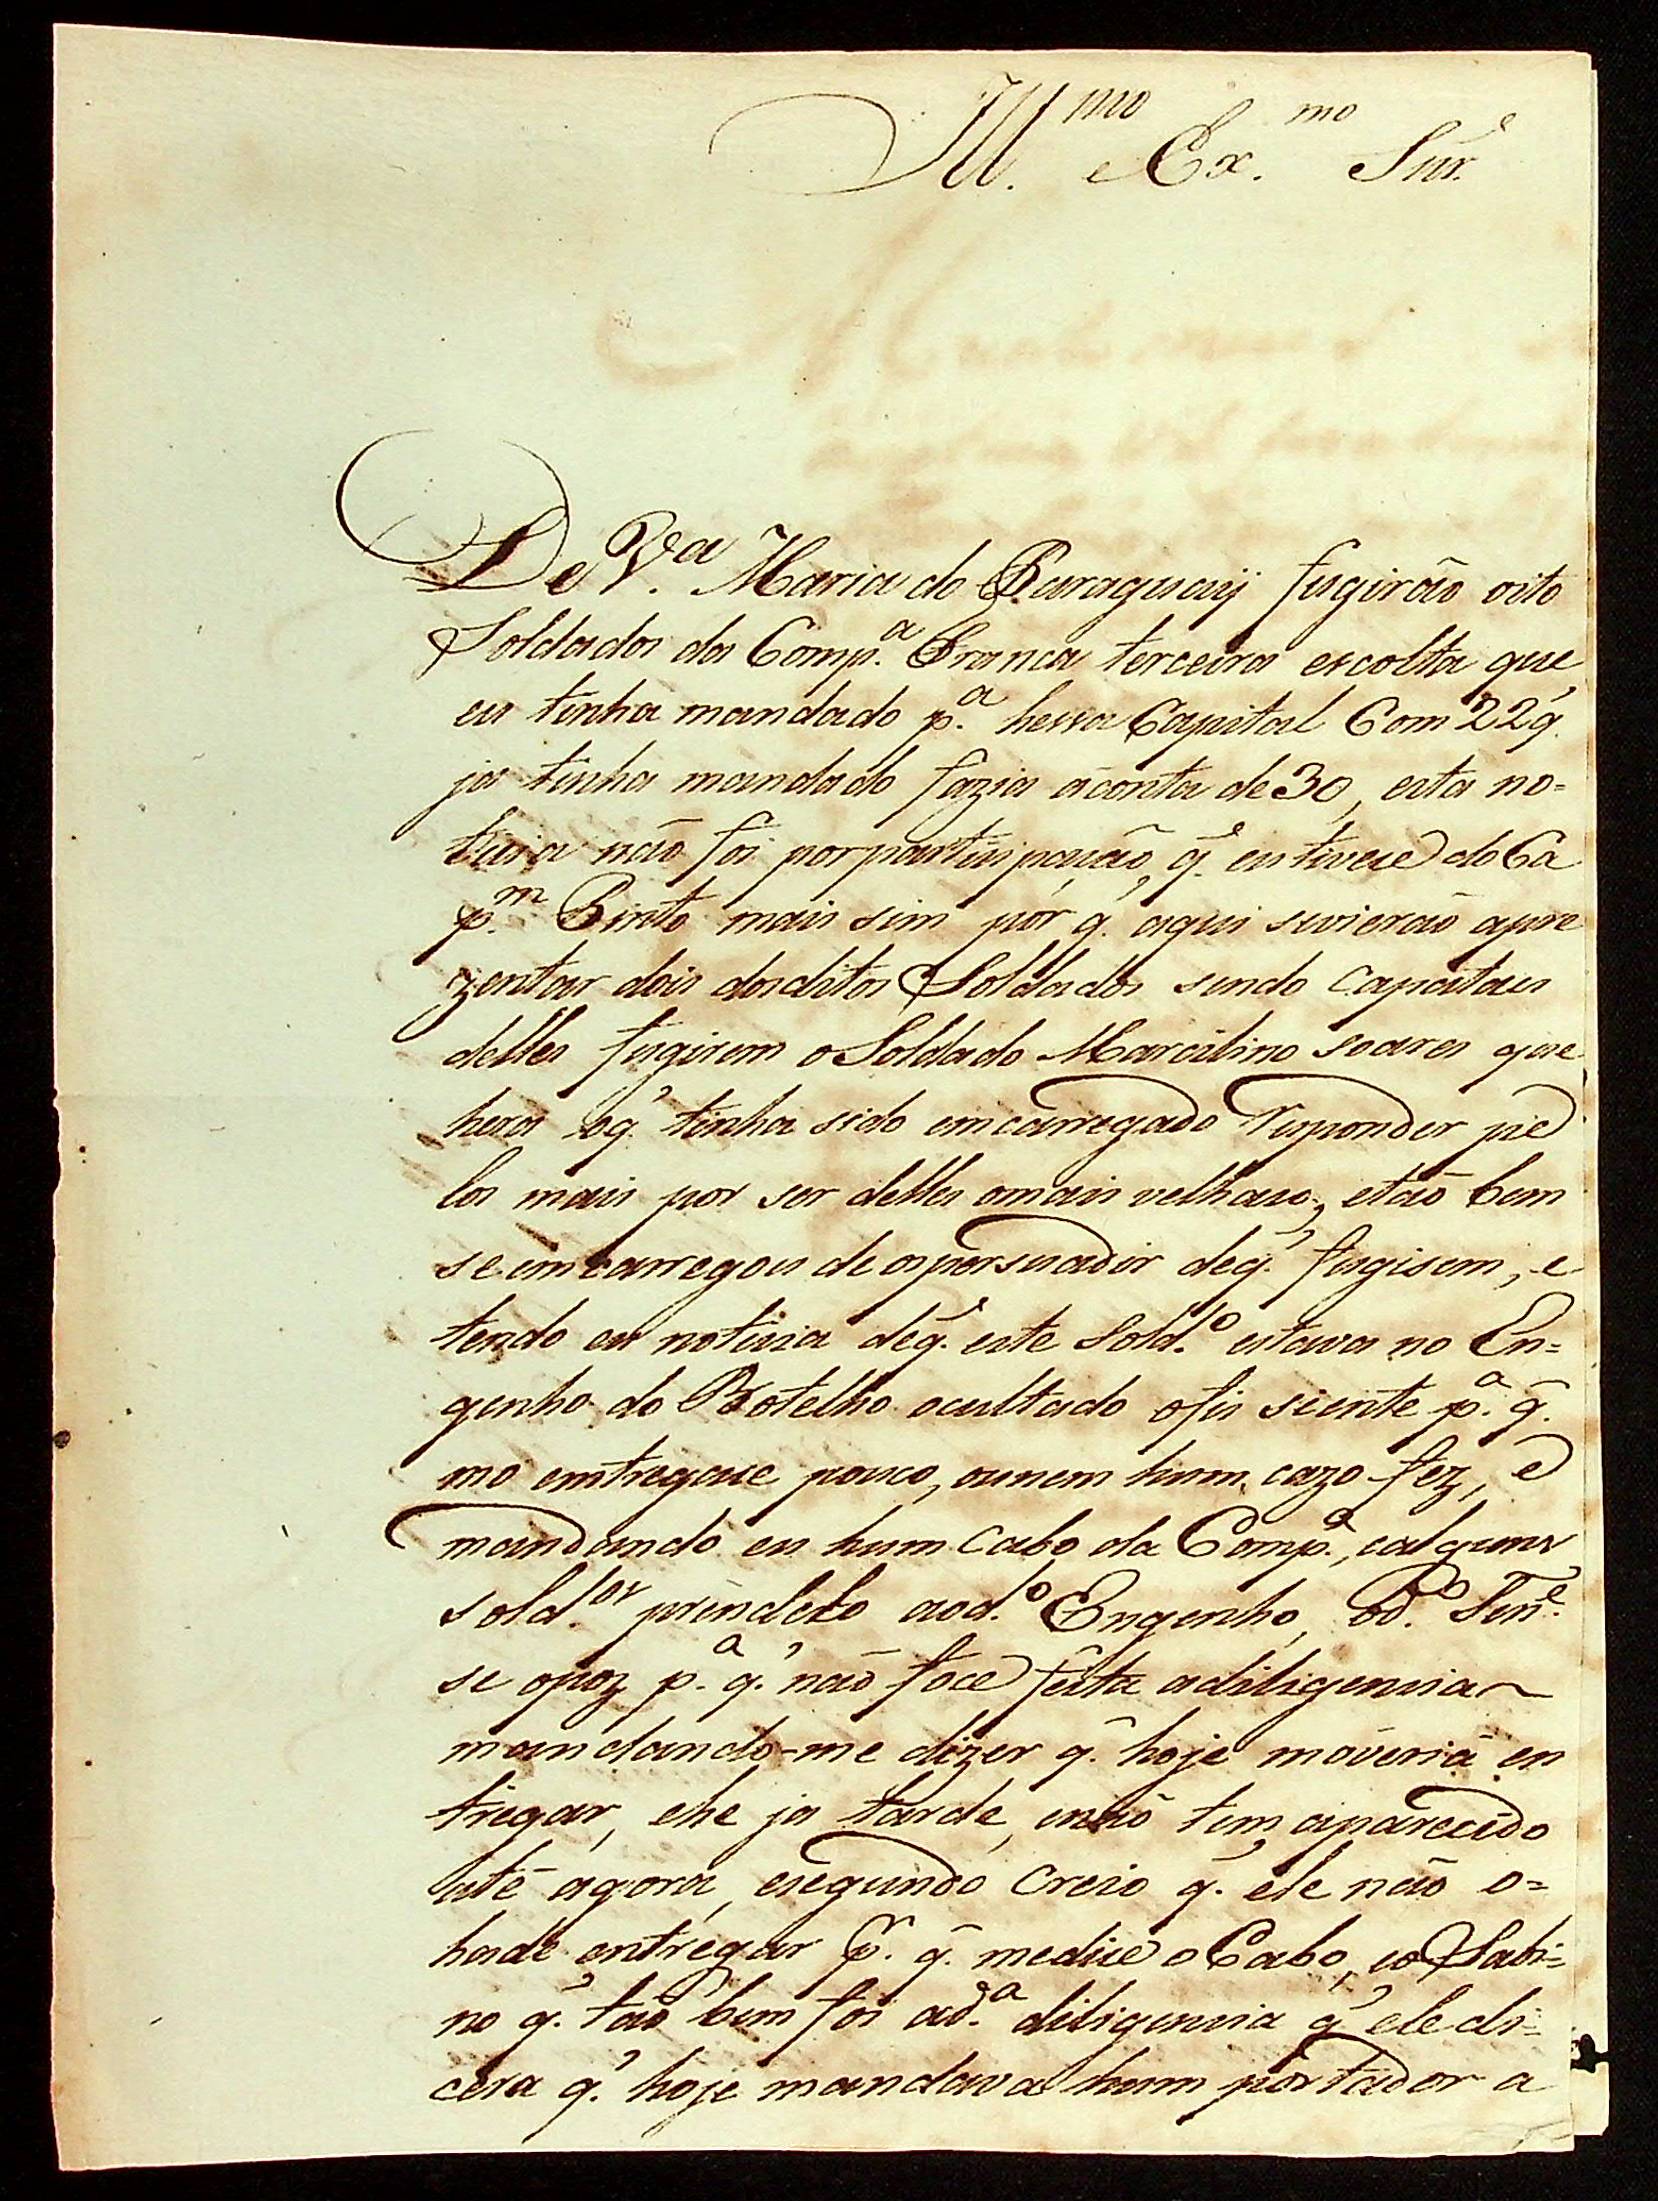 Ill.mo e Ex.mo Snr.e
De V.a Maria do Paraguaij fugirão oito
Soldados da Comp.a Franca terceira escolta que
eu tinha mandado p.a hessa Capital Com 22 q.
ja tinha mandado fazia aconta de 30, esta no=
ticia não foi por partisipação, q.' eu tivese do Ca
p.m Pinto mais sim por q. aqui sivierão apre
zentar dois dosditos Soldados sendo capataes
delles fugirem o Soldado Marcilino soares que
hera oq.' tinha sido emcarregado Responder pe
los mais por ser delles omais velhaco, etão bem
seimcarregou de opersuadir deq.' fugisem, e
tendo eu noticia deq.' este Sold.o estava no En=
genho do Botelho ocultado ofis siente p.a q.
mo emtregase pouco, ounem hum cazo fez, e
mandando eu hum Cabo da Comp.a, ealguns
sold.os prendelo aod.o Engenho, od.o Ten.e
se opoz p.a q.' não foce feita adiligencia
mandando-me dizer q. hoje moveria en
tregar, ehe ja tarde, enão tem aparecido
até agora, esegundo Creio q. ele não o=
hade entregar p.r q. medise o Cabo, eo Sabi=
no q.' tão bem foi ad.a diligencia q.' ele di=
cera q.' hoje mandava hum portador a